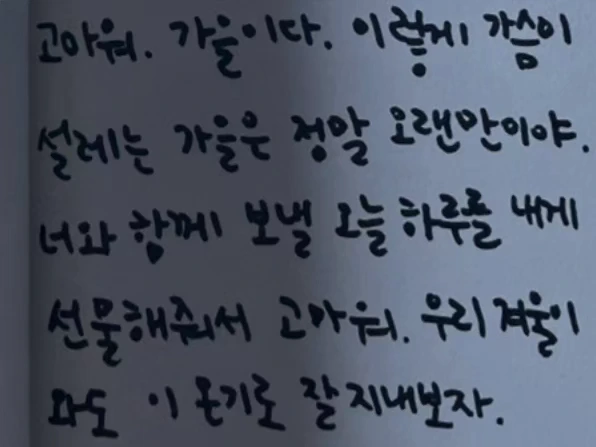 고마워. 가을이다. 이렇게 가슴이
설레는 가을은 정말 오랜만이야.
너와 함께 보낼 오늘 하루를 내게
선물해줘서 고마워. 우리 겨울이
와도 이 온기로 잘 지내보자.